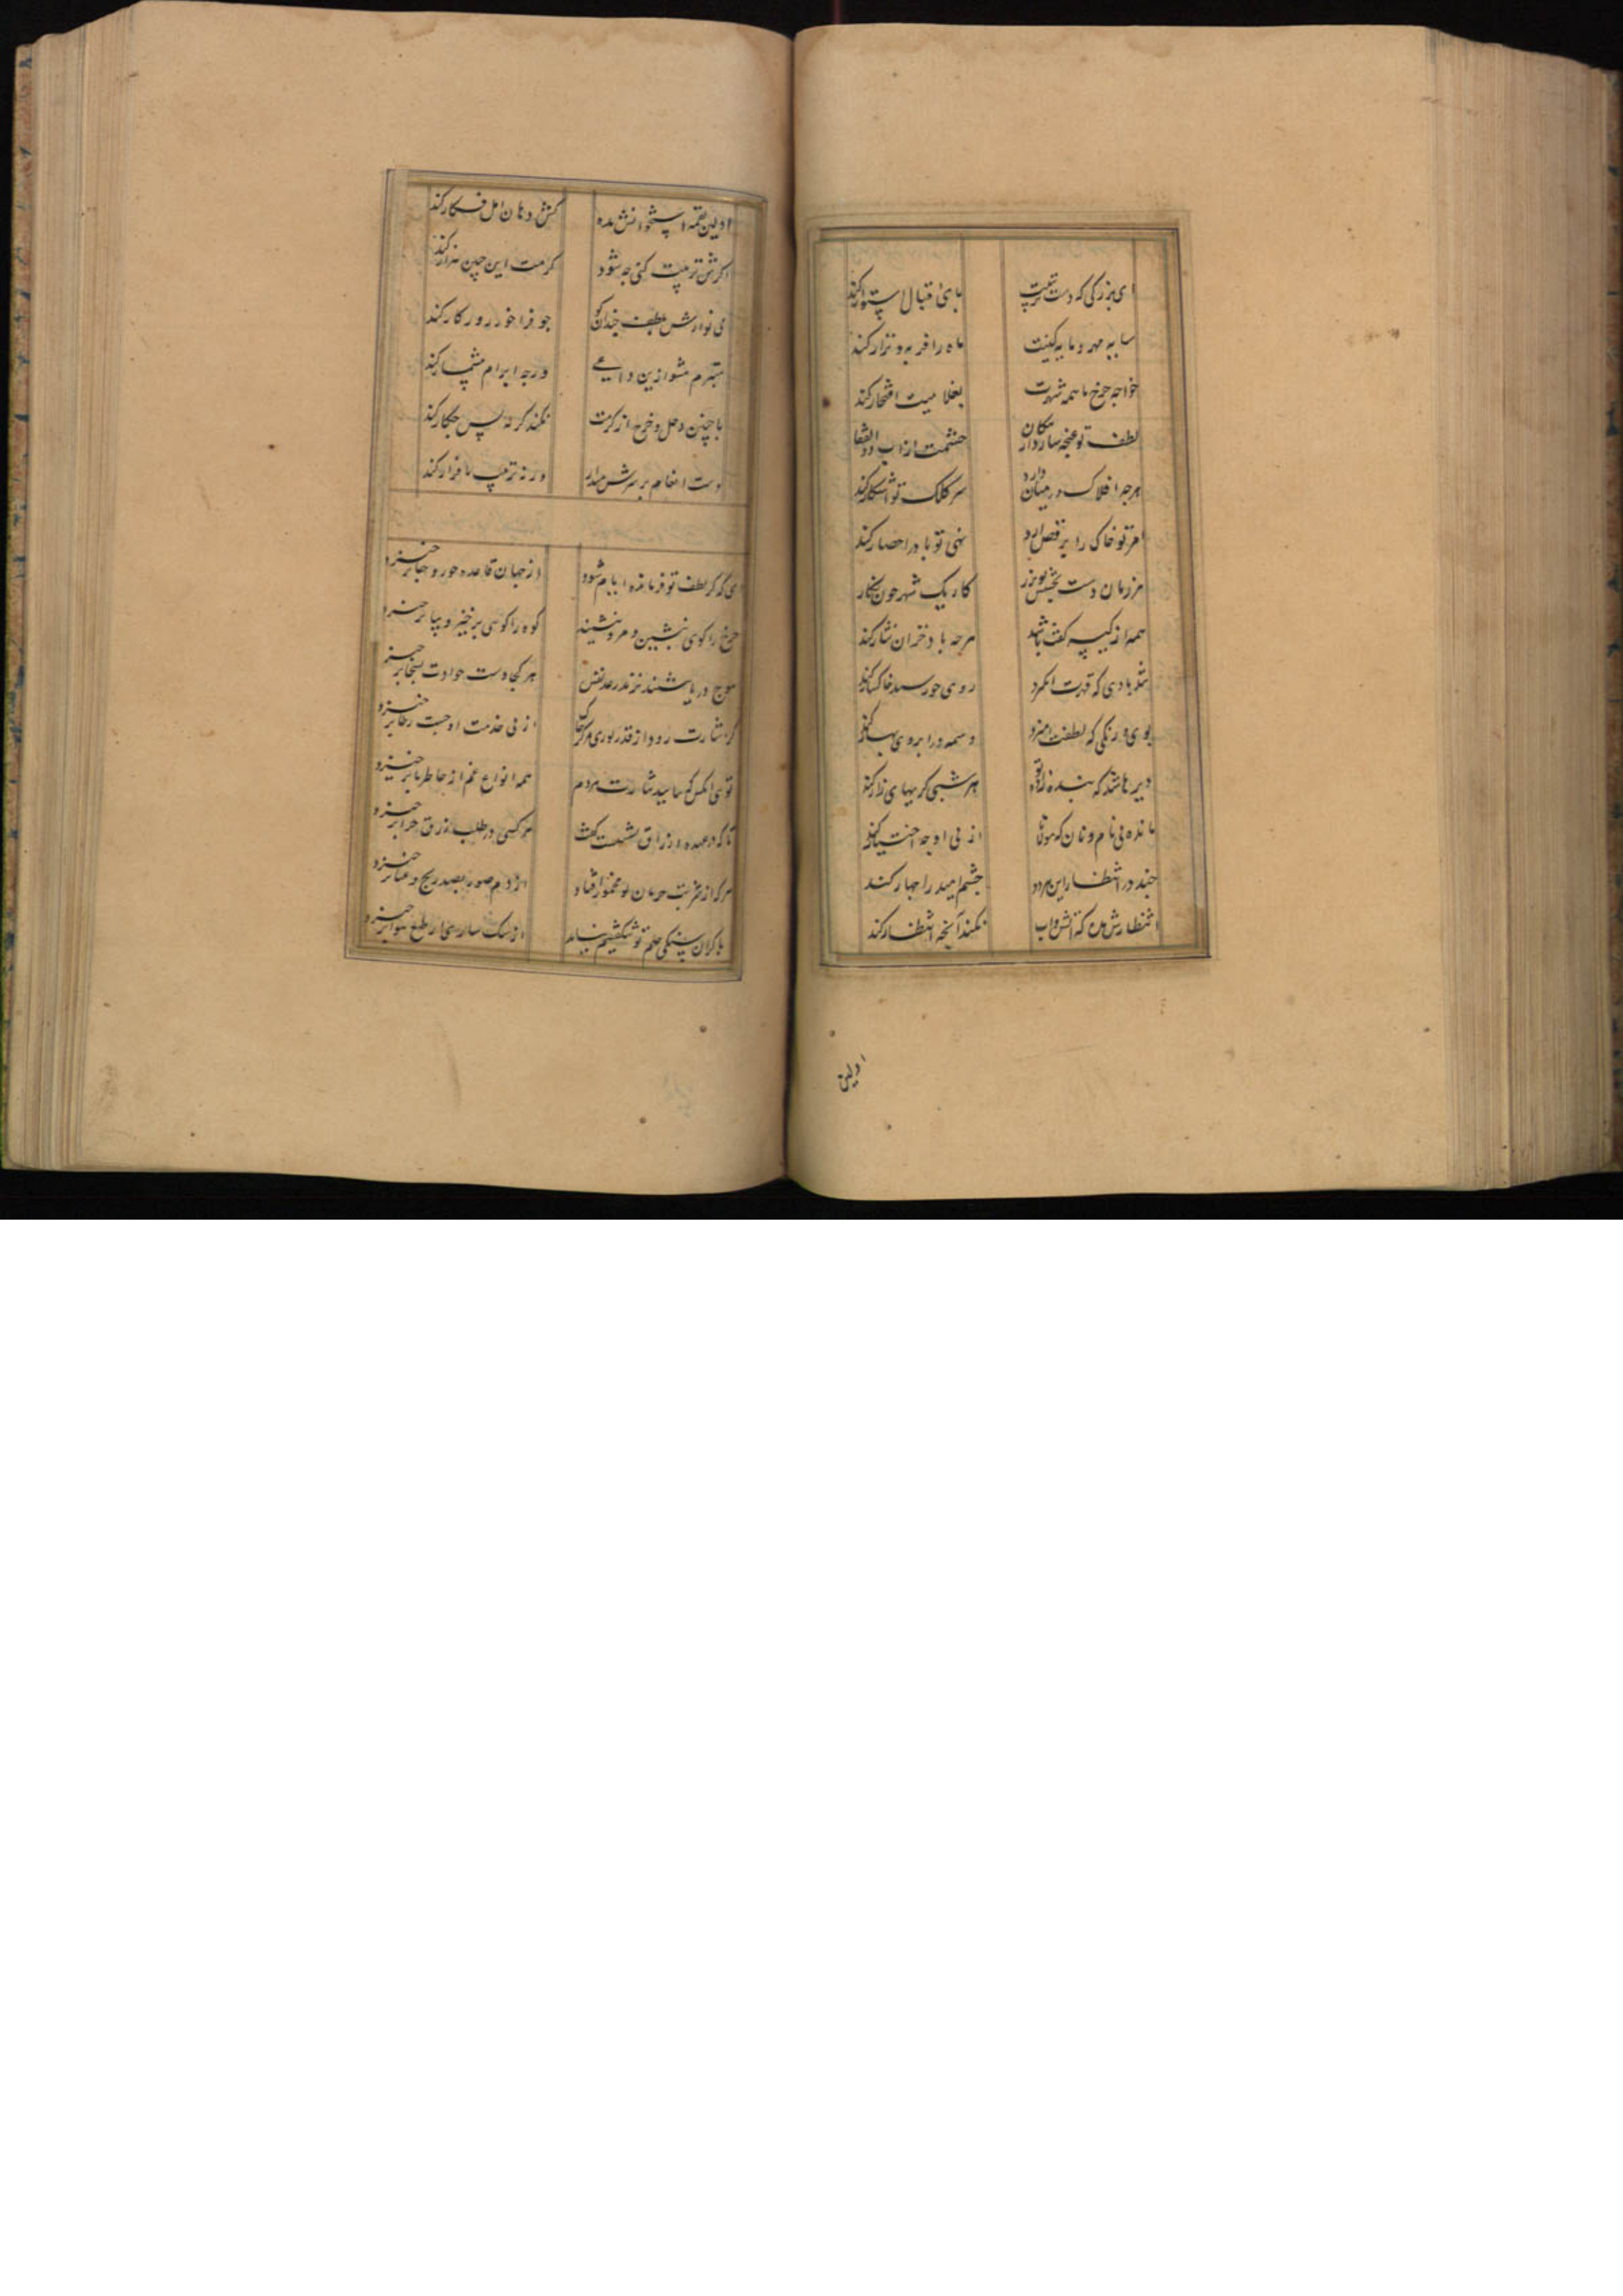 ای بزرگی که دست تربیتت پای اقبال استوار کند
سایه مهر و مایه کینت ماه را فربه و نزار کند
خواجه چرخ با همه شهرت بغلامیت افتخار کند
لطف تو غنچه سازد از پیکان خشمت از آب ذوالفقار
هرچه افلاک در میان دارد سر کلک تو آشکار کند
امر تو خاک را برقص آرد نهی تو باد را حصار کند
هر زمان دست بخشش تو بزر کار یک شهر چون نگار
همه از کیسه کفت باشد هرچه باد خزان نثار کند
تند بادی که قهرت انگیزد روی خورشید خاکسار کند
بوی و رنگی که لطفت آمیزد وسمه در ابروی بهار کند
دیر باشد که بنده زاده تو هر شبی گریهای زار کند
مانده بی نام و نان که مولانا از پی او چه اختیار کند
چند در انتظار این مردو چشم امید را چهار کند
انتظارش مده که آتش و آب نکند آنچه انتظار کند
اولین
اولین لقمه استخوانش مده کش دهان امل فکار کند
اگرش تربیت کنی چه شود کرمت این چنین هزار کند
می نوازش بلطف چندان کو جو فرا خورد و رکار کند
متبرم مشو ازین داعی ورچه ابرام بیشمار کند
با چنین دخل و خرج از کرمت نکند گر گله پس چکار کند
دست انعام بر سرش میدار ورنه ترتیب پا فزار کند
ای که گر لطف تو فرمانده ایام شود از جهان قاعده جور و جفا برخیزد
چرخ را گوی بنشین و مرو بنشیند کوه را گوی برخیز و بیا برخیزد
موج دریا بنشیند نزند رعد نفس هر کجا دست حوادث بسخا برخیزد
گر اشارت رود از قدر توری مرکز خاک از پی خدمت او جست ز جا برخیزد
توی آنکس که بامید بشارت مردم همه انواع غم از خاطر ما برخیزد
تا که در عهده ارزاق نشست کفت هر کسی در طلب رزق چرا برخیزد
هر که از شربت حرمان تو مخمور افتاد از دم صور بصد رنج و عنا برخیزد
با گران سنگی حلم تو شکفتم نیاید از سبک ساری ار طبع هوا برخیزد